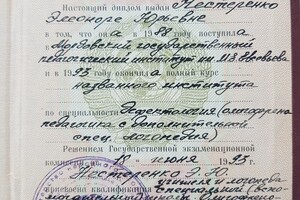 Настоящий диплом выдан Нестеренко
Элеоноре Юрьевне
в том, что она в 1988 году поступила
в Мордовский государственный
педагогический институт им. М.Е. Евсевьева
и в 1993 году окончила полный курс
названного института
по специальности Дефектология (олигофрено
педагогика с дополнительной
спец. логопедия)
Решением Государственной экзаменационной
комиссии от 18 июня 1993 г.
Нестеренко Э.Ю.
присвоена квалификация учителя и логопеда
специальной (вспо-
могательной)